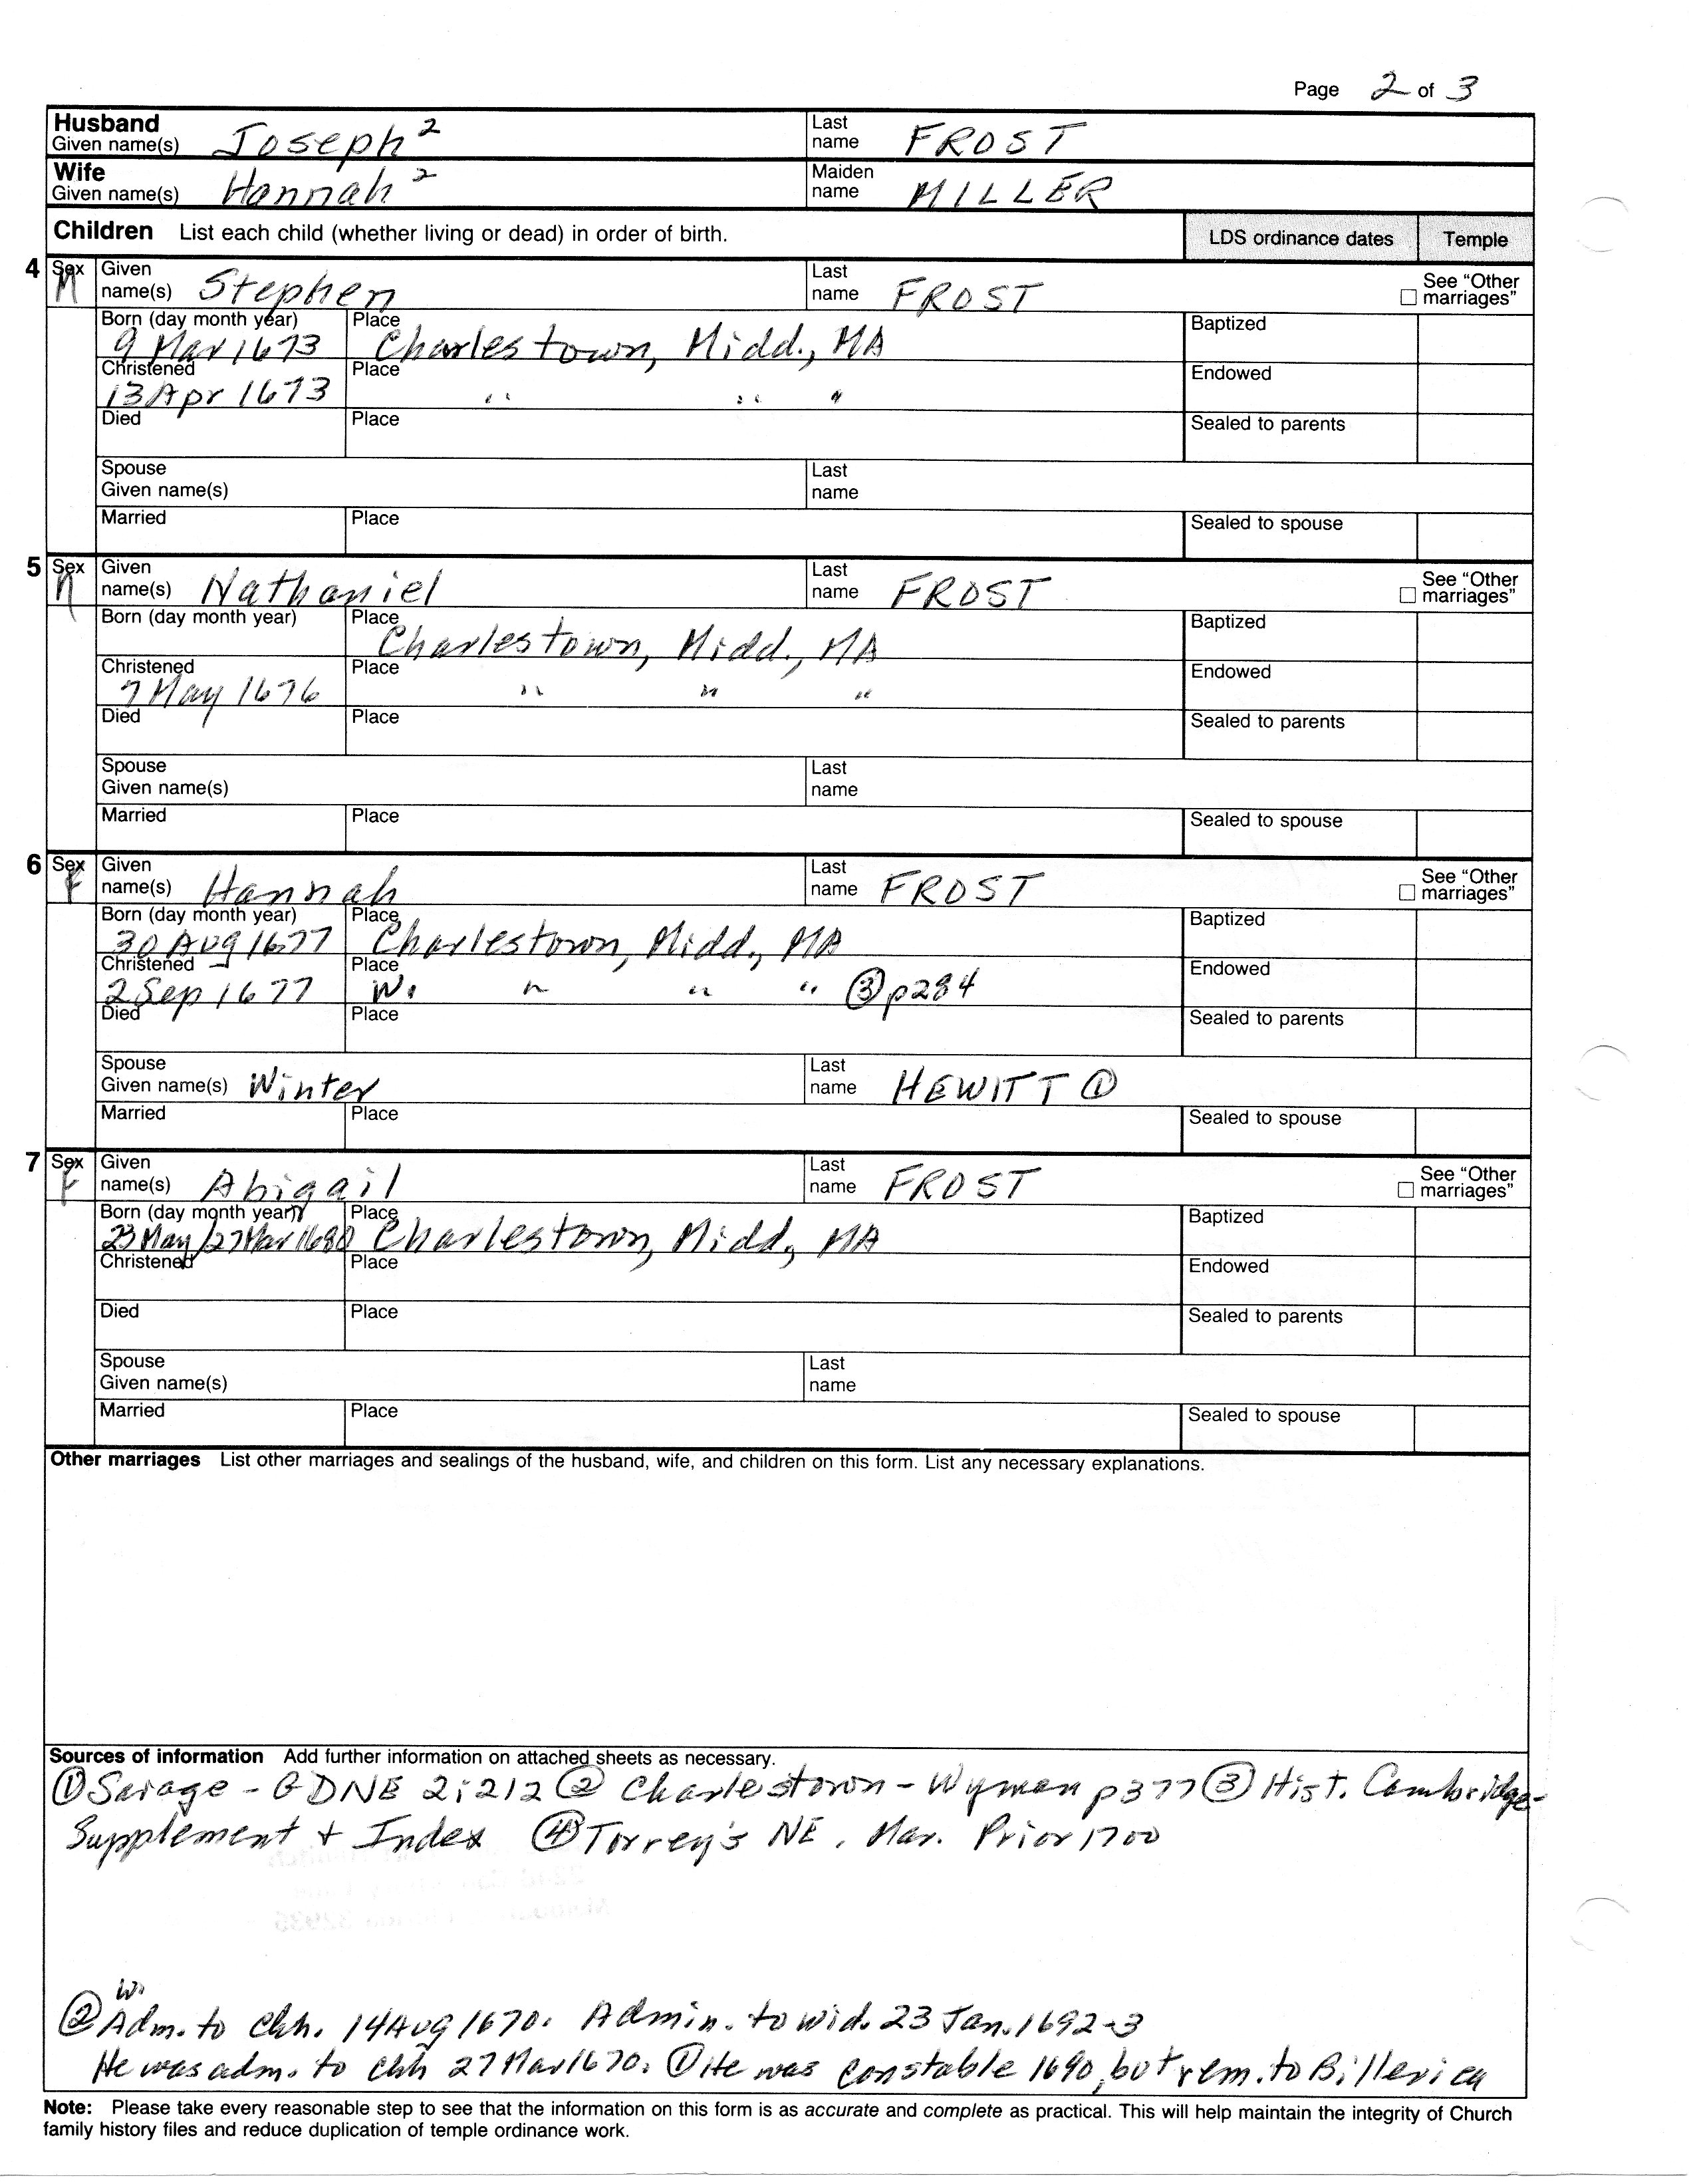 Page 2 of 3
Husband Given name(s) Joseph² Last name FROST
Wife Given name(s) Hannah² Maiden name MILLER
Children List each child (whether living or dead) in order of birth. LDS ordinance dates Temple
4 Sex M Given name(s) Stephen Last name FROST See "Other marriages"
Born (day month year) 9 Mar 1673 Place Charlestown, Midd., MA Baptized
Christened 13 Apr 1673 Place " " " Endowed
Died Place Sealed to parents
Spouse Given name(s) Last name
Married Place Sealed to spouse
5 Sex M Given name(s) Nathaniel Last name FROST See "Other marriages"
Born (day month year) Place Charlestown, Midd., MA Baptized
Christened 7 May 1676 Place " " " Endowed
Died Place Sealed to parents
Spouse Given name(s) Last name
Married Place Sealed to spouse
6 Sex F Given name(s) Hannah Last name FROST See "Other marriages"
Born (day month year) 30 Aug 1677 Place Charlestown, Midd., MA Baptized
Christened 2 Sep 1677 Place W. " " " ③ p284 Endowed
Died Place Sealed to parents
Spouse Given name(s) Winter Last name HEWITT ①
Married Place Sealed to spouse
7 Sex F Given name(s) Abigail Last name FROST See "Other marriages"
Born (day month year) 23 May/27 Mar 1680 Place Charlestown, Midd., MA Baptized
Christened Place Endowed
Died Place Sealed to parents
Spouse Given name(s) Last name
Married Place Sealed to spouse
Other marriages List other marriages and sealings of the husband, wife, and children on this form. List any necessary explanations.
Sources of information Add further information on attached sheets as necessary.
① Savage - GDNE 2:212 ② Charlestown - Wyman p377 ③ Hist. Cambridge-
Supplement + Index ④ Torrey's NE. Mar. Prior 1700
W.
② Adm. to Chh. 14 Aug 1670. Admin. to wid. 23 Jan. 1692-3
He was adm. to Chh 27 Mar 1670. ① He was constable 1690, but rem. to Billerica
Note: Please take every reasonable step to see that the information on this form is as accurate and complete as practical. This will help maintain the integrity of Church
family history files and reduce duplication of temple ordinance work.